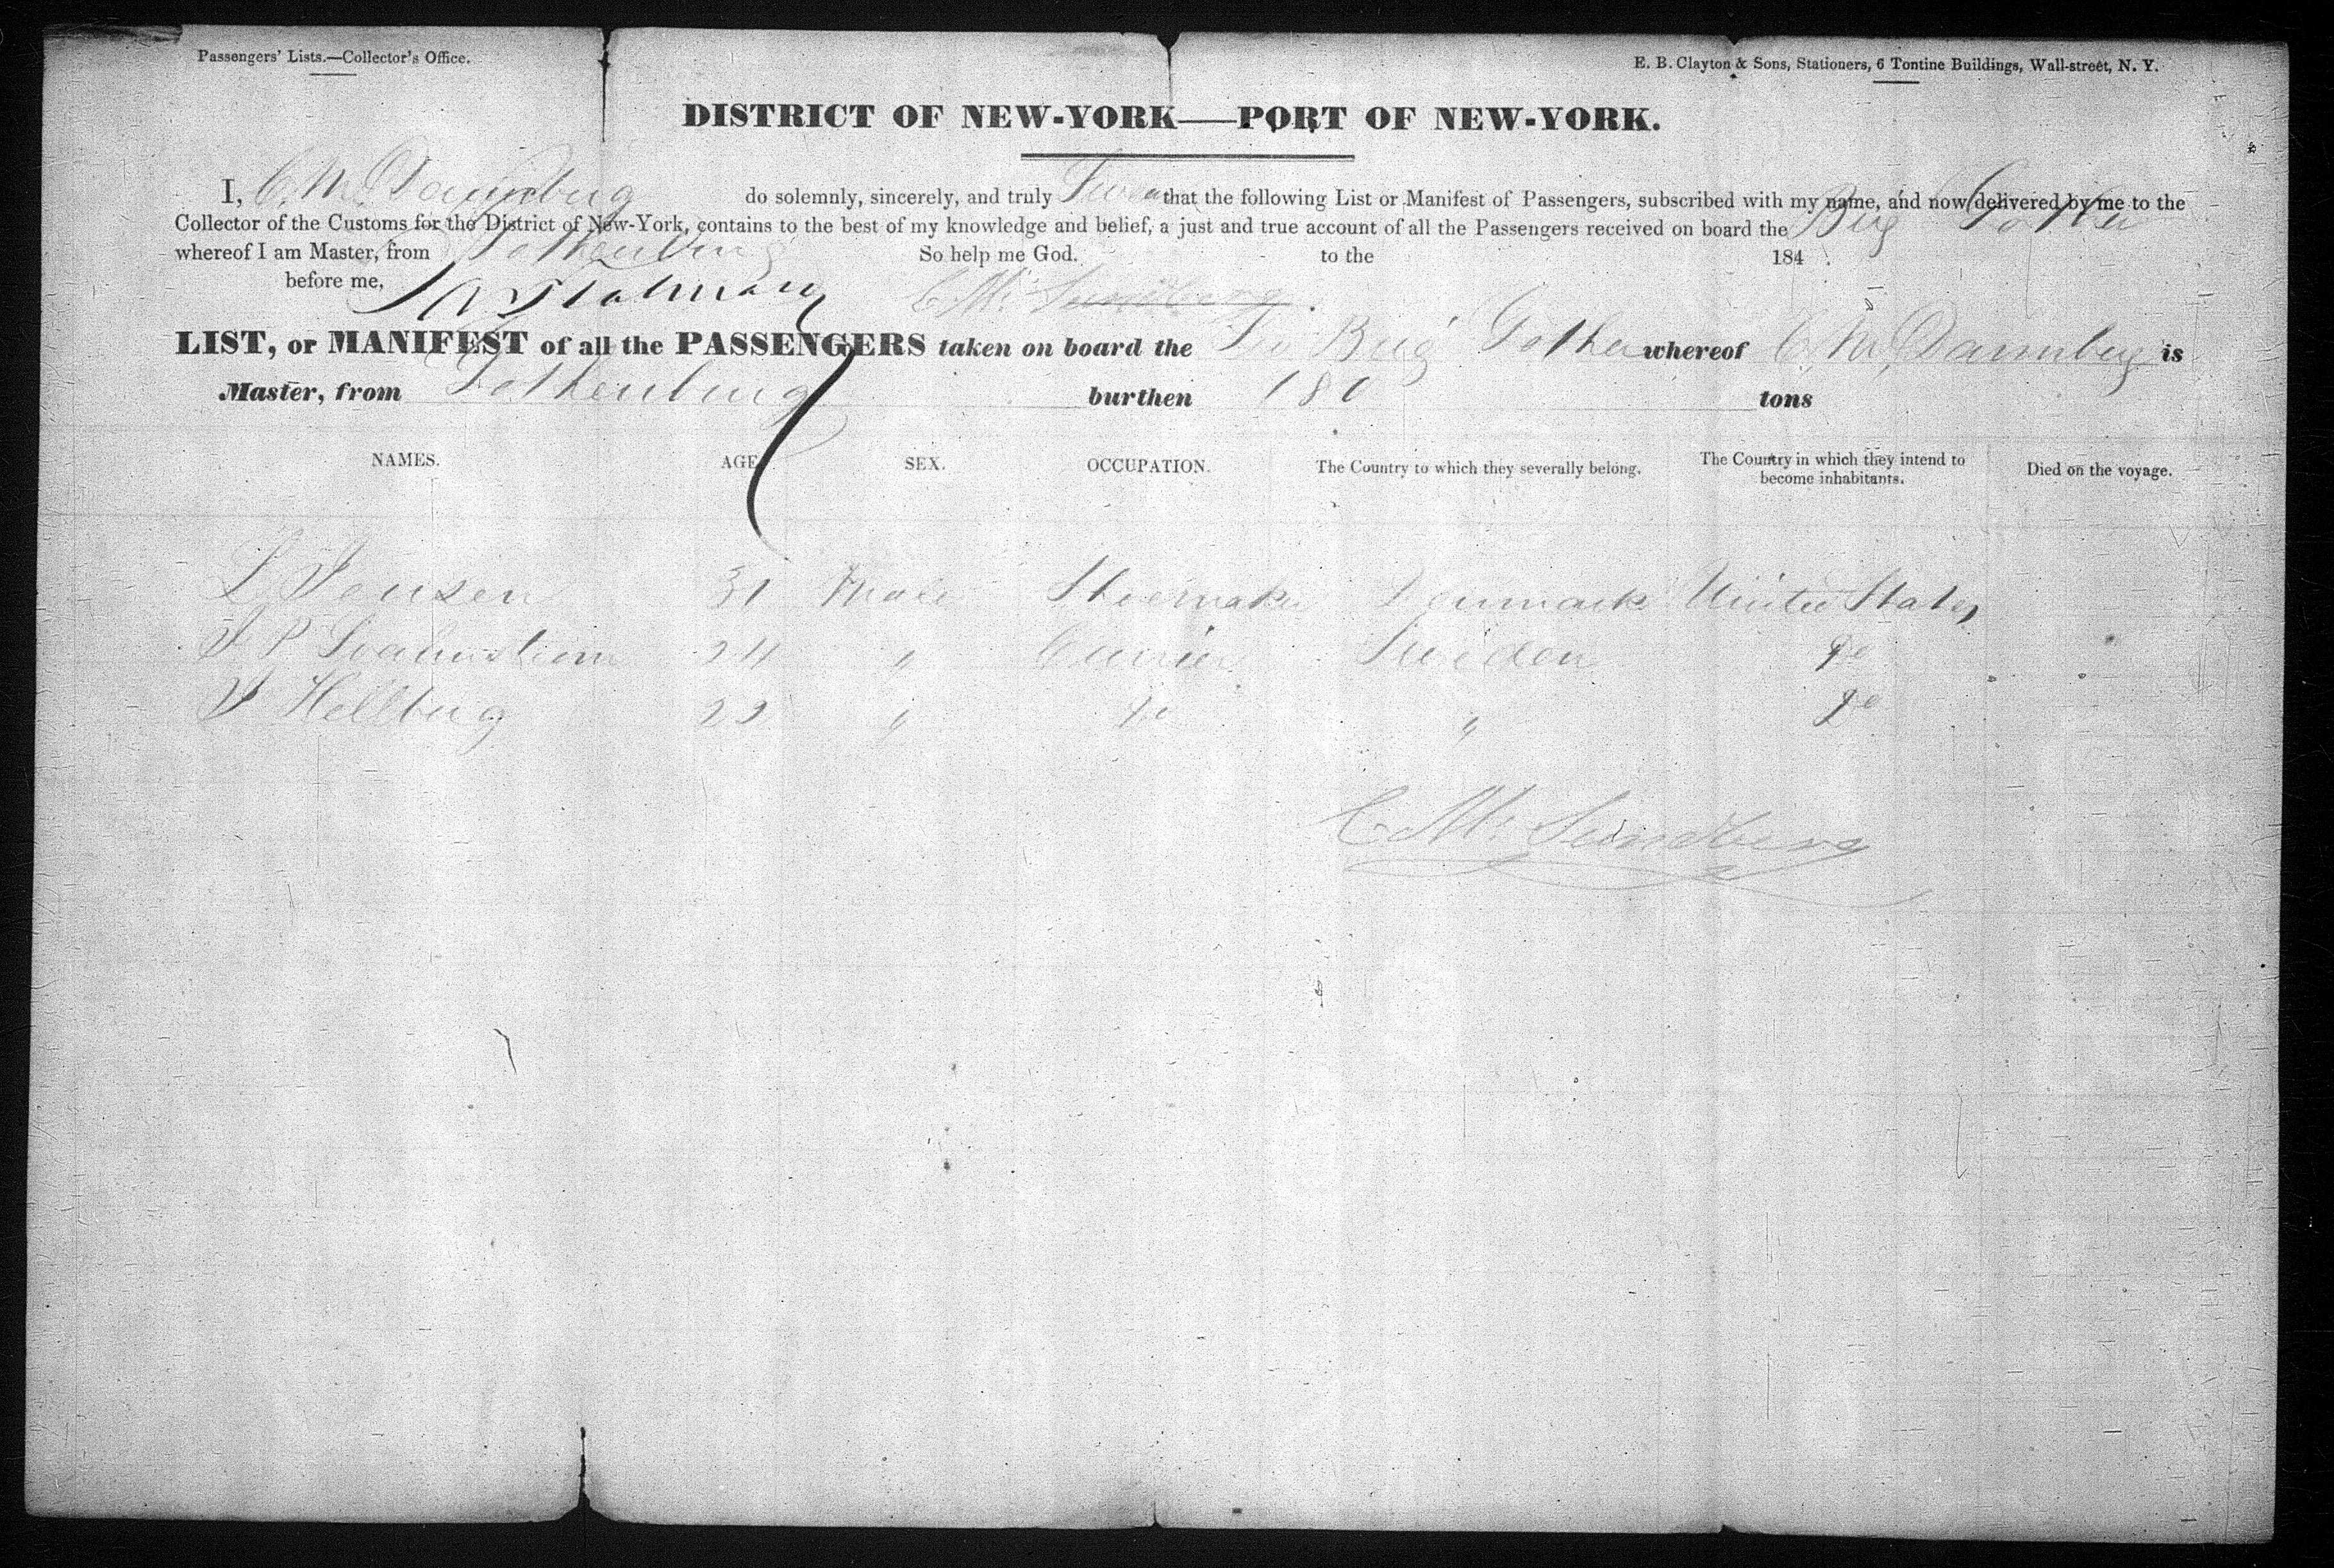 Passengers' Lists.—Collector's Office.
E. B. Clayton & Sons, Stationers, 6 Tontine Buildings, Wall-street, N. Y.
DISTRICT OF NEW-YORK—PORT OF NEW-YORK.
I, C. M. do solemnly, sincerely, and truly that the following List or Manifest of Passengers, subscribed with my name, and now delivered by me to the
Collector of the Customs for the District of New-York, contains to the best of my knowledge and belief, a just and true account of all the Passengers received on board the Brig Gotha
whereof I am Master, from Gothenburg So help me God. to the 184 .
before me, C M: Sundberg
LIST, or MANIFEST of all the PASSENGERS taken on board the Brig Gotha whereof C. M. is
Master, from Gothenburg burthen 180 tons
NAMES. AGE SEX. OCCUPATION. The Country to which they severally belong. The Country in which they intend to become inhabitants. Died on the voyage.
L Jensen 31 Male Shoemaker Denmark United States
J P 24 " Currier Sweden do
J Hellberg 23 " do " do
C M: Sundberg